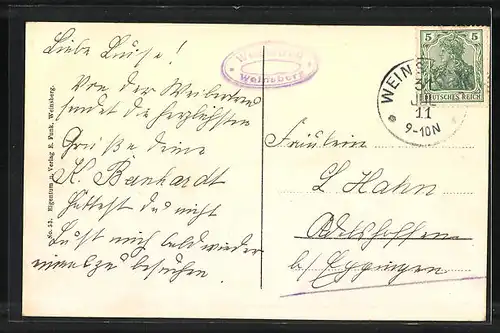 Liebe Luise!
Von der Weibertreu
sendet die herzlichsten
Grüße deine
K. Banhardt
Hättest du nicht
Lust mich bald wieder
einmal zu besuchen.
No. 52. Eigentum u. Verlag E. Funk, Weinsberg.
Weinsberg
5 5
DEUTSCHES REICH
WEINS
JUL
11
9-10N
Fräulein
L Hahn
Adelshofen
b/ Eppingen